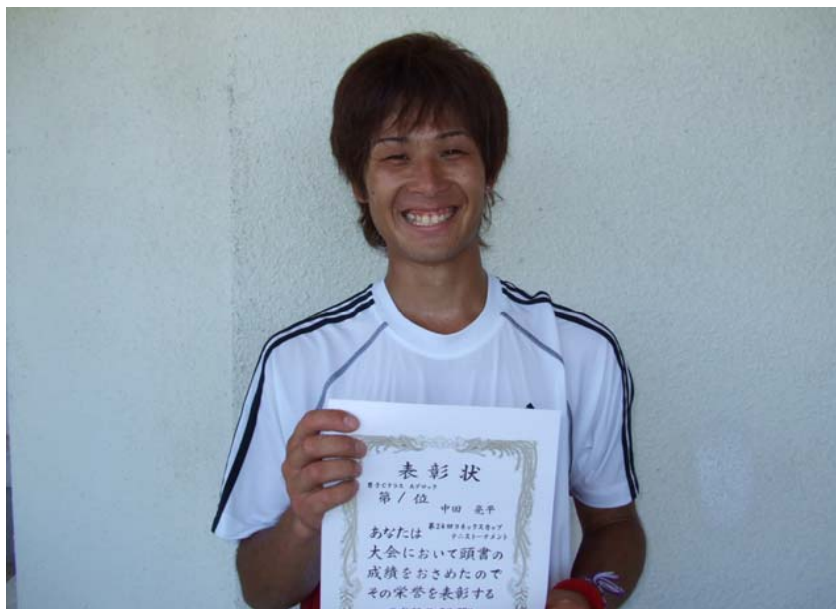 表彰状
男子Cクラス Aブロック
第1位
中田 亮平
あなたは 第24回ヨネックスカップ
テニストーナメント
大会において頭書の
成績をおさめたので
その栄誉を表彰する